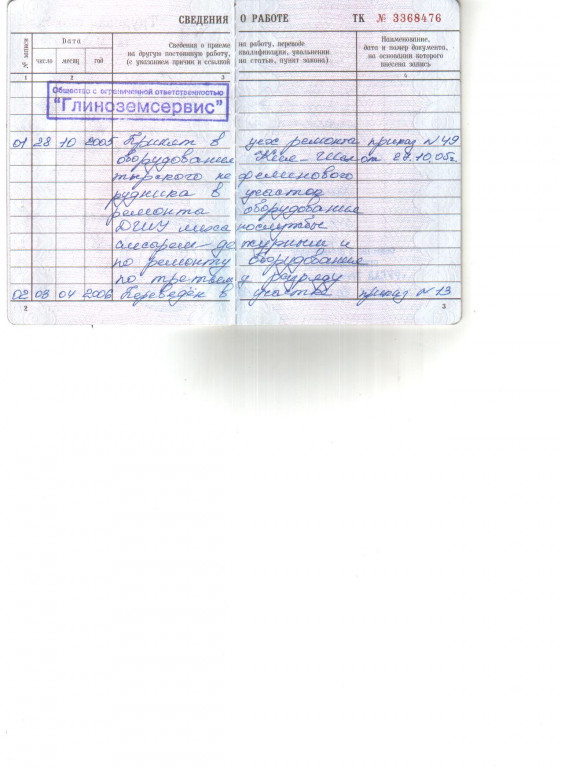 СВЕДЕНИЯ О РАБОТЕ ТК № 3368476
№ записи
Дата
число месяц год
Сведения о приеме на работу, переводе
на другую постоянную работу, квалификации, увольнении
(с указанием причин и ссылкой на статью, пункт закона)
Наименование,
дата и номер документа,
на основании которого
внесена запись
1 2 3 4
Общество с ограниченной ответственностью
"Глиноземсервис"
01 28 10 2005 Принят в цех ремонта приказ N 49
оборудования Кия-Шал от 28.10.05г.
тырского нефелинового
рудника в участок
ремонта оборудования
механослужбы
слесарем-дежурным и
по ремонту оборудования
по третьему разряду
02 03 04 2006 Переведён в участке приказ N 13
2 3